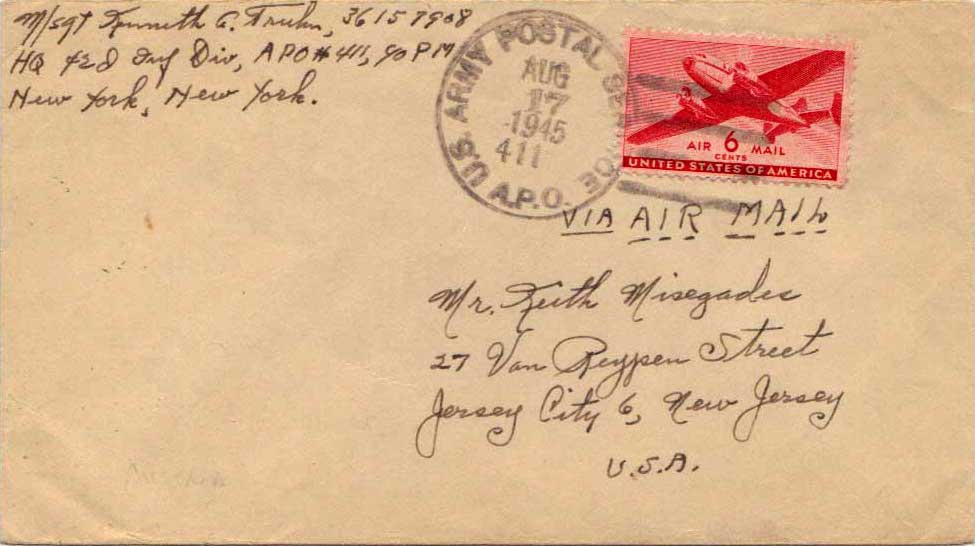 M/sgt Kenneth G. Truhn, 36157908
HQ 42d Inf Div, APO #411, % PM
New York, New York.
U.S. ARMY POSTAL SERVICE
AUG
17
1945
411
A.P.O.
AIR 6 MAIL
CENTS
UNITED STATES OF AMERICA
VIA AIR MAIL
Mr. Keith Misegades
27 Van Reypen Street
Jersey City 6, New Jersey
U.S.A.